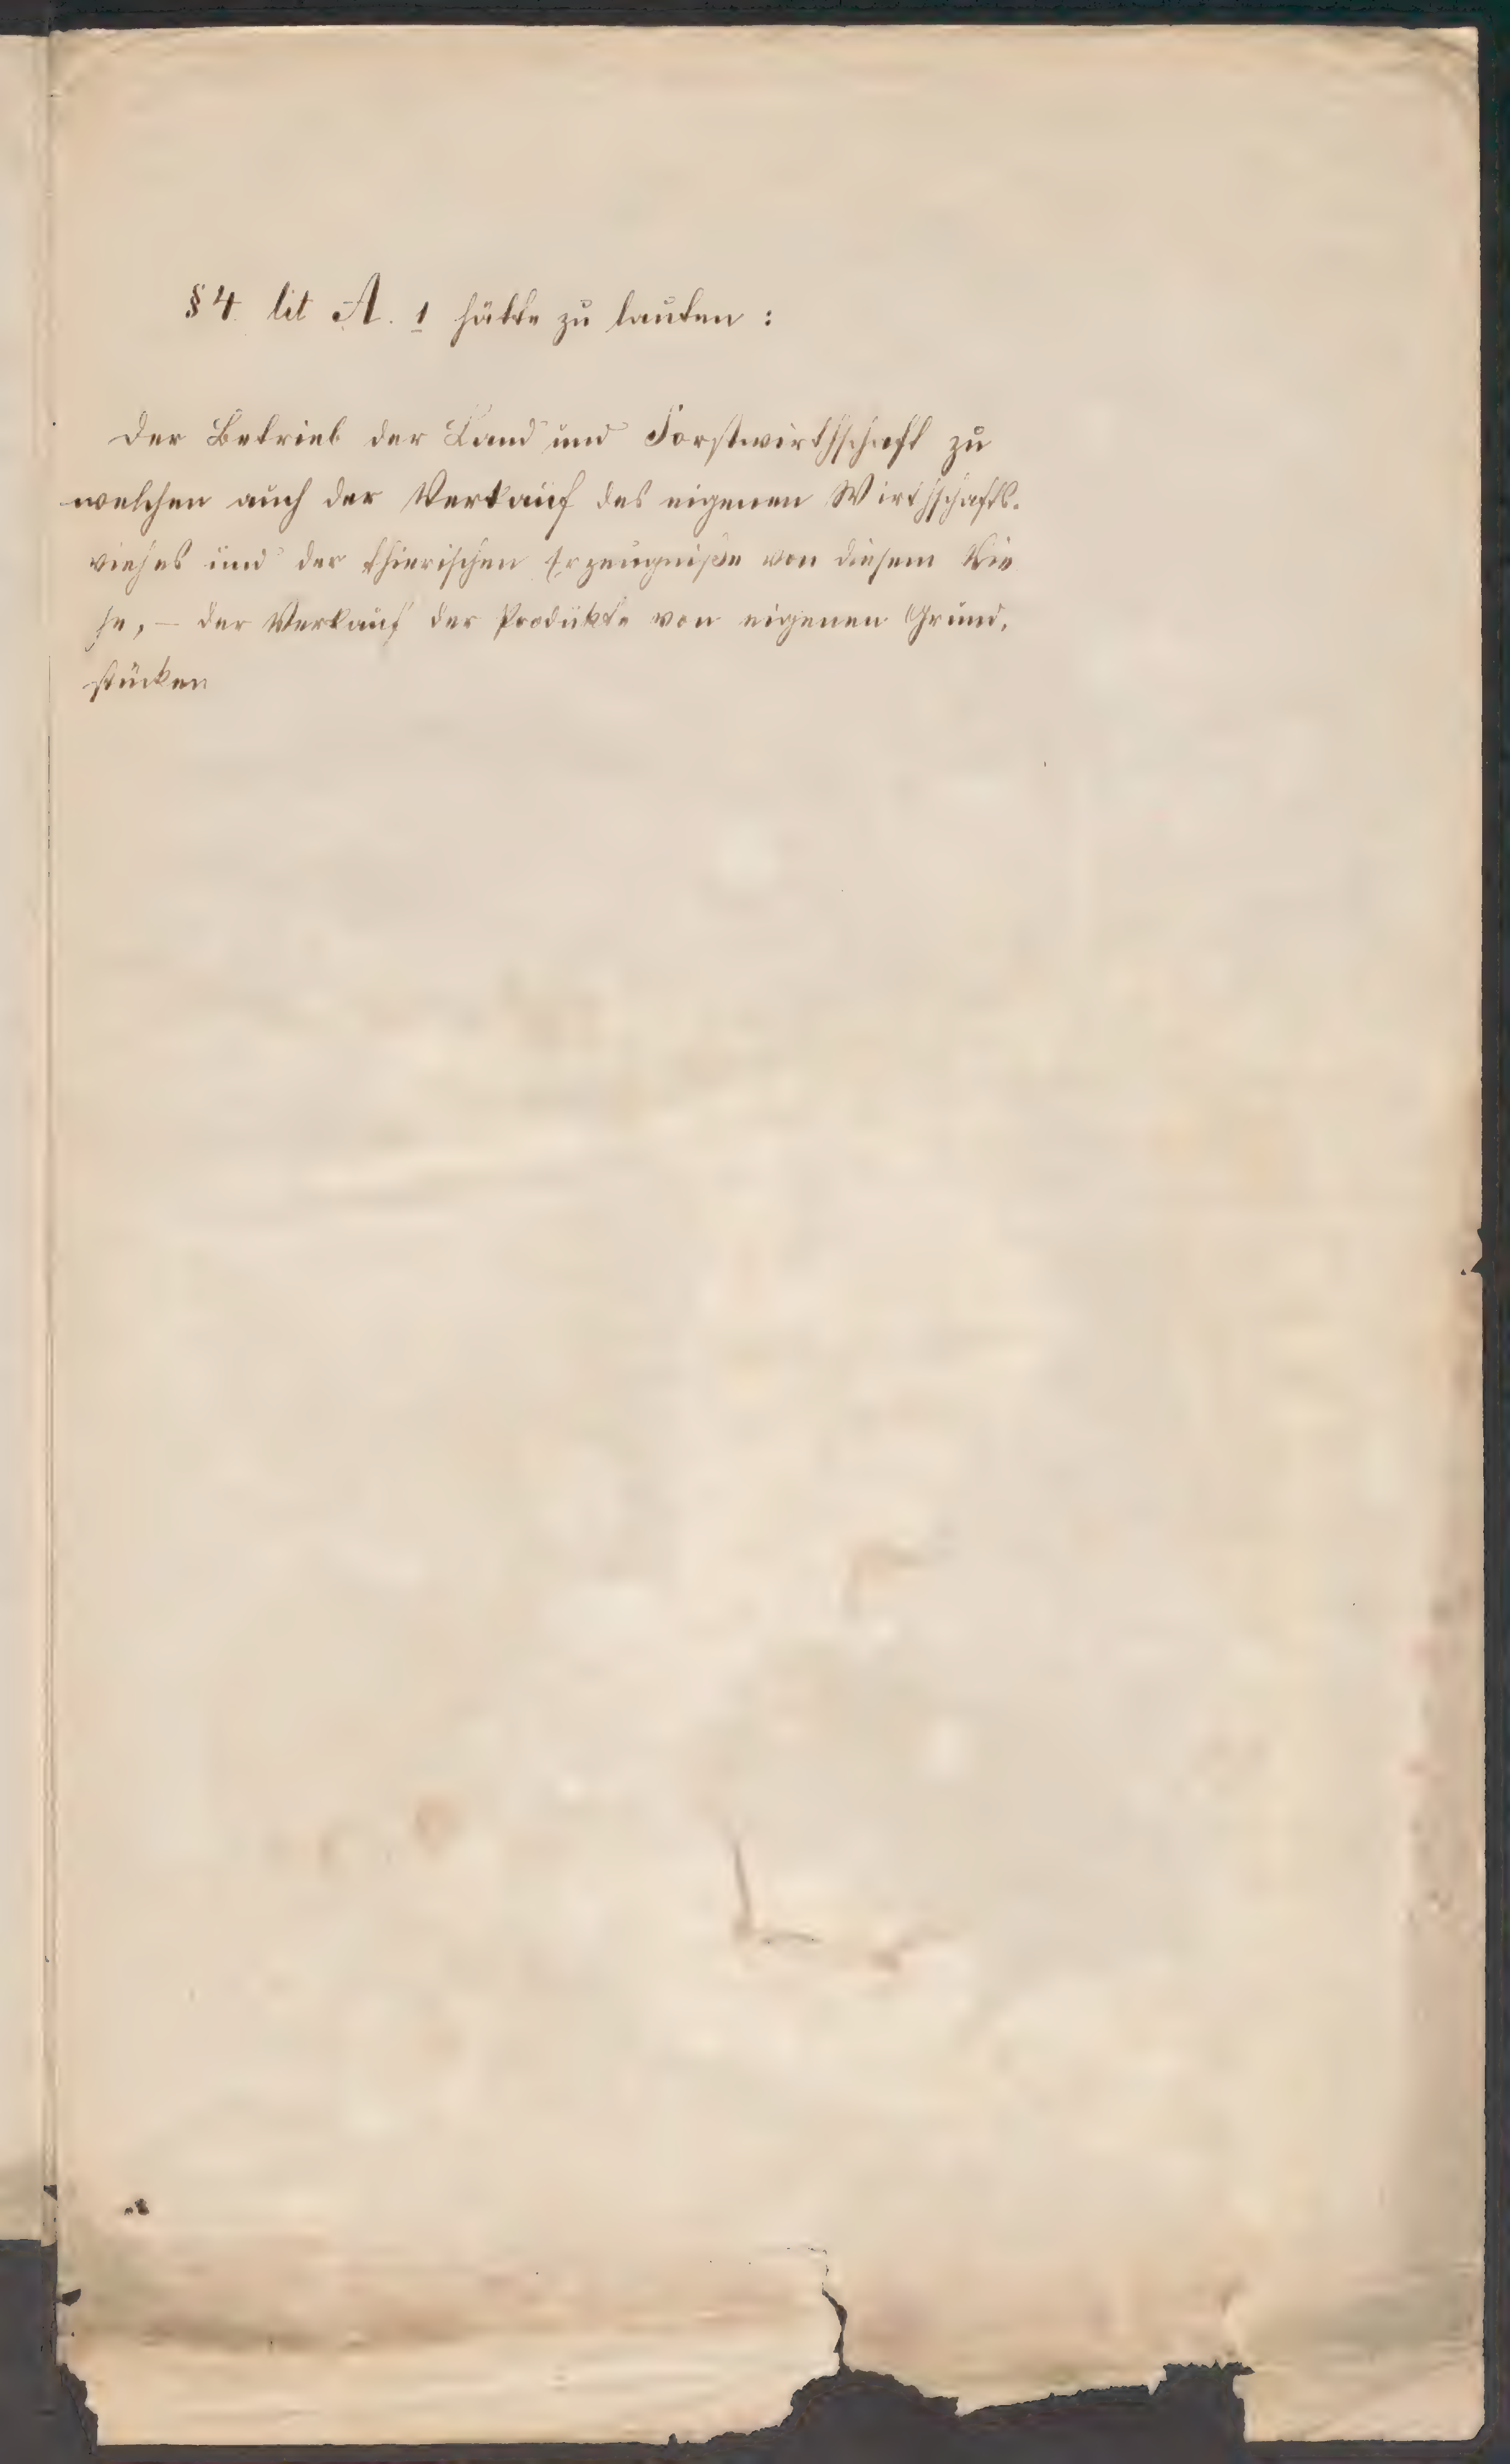 § 4. lit A. 1 hätte zu lauten :
Der Betrieb der Land und Forstwirthschaft zu
welchen auch der Verkauf des eigenen Wirthschafts-
viehes und der thierischen Erzeugniße von diesem Vie
he, – der Verkauf der Produkte von eigenen Grund-
stücken